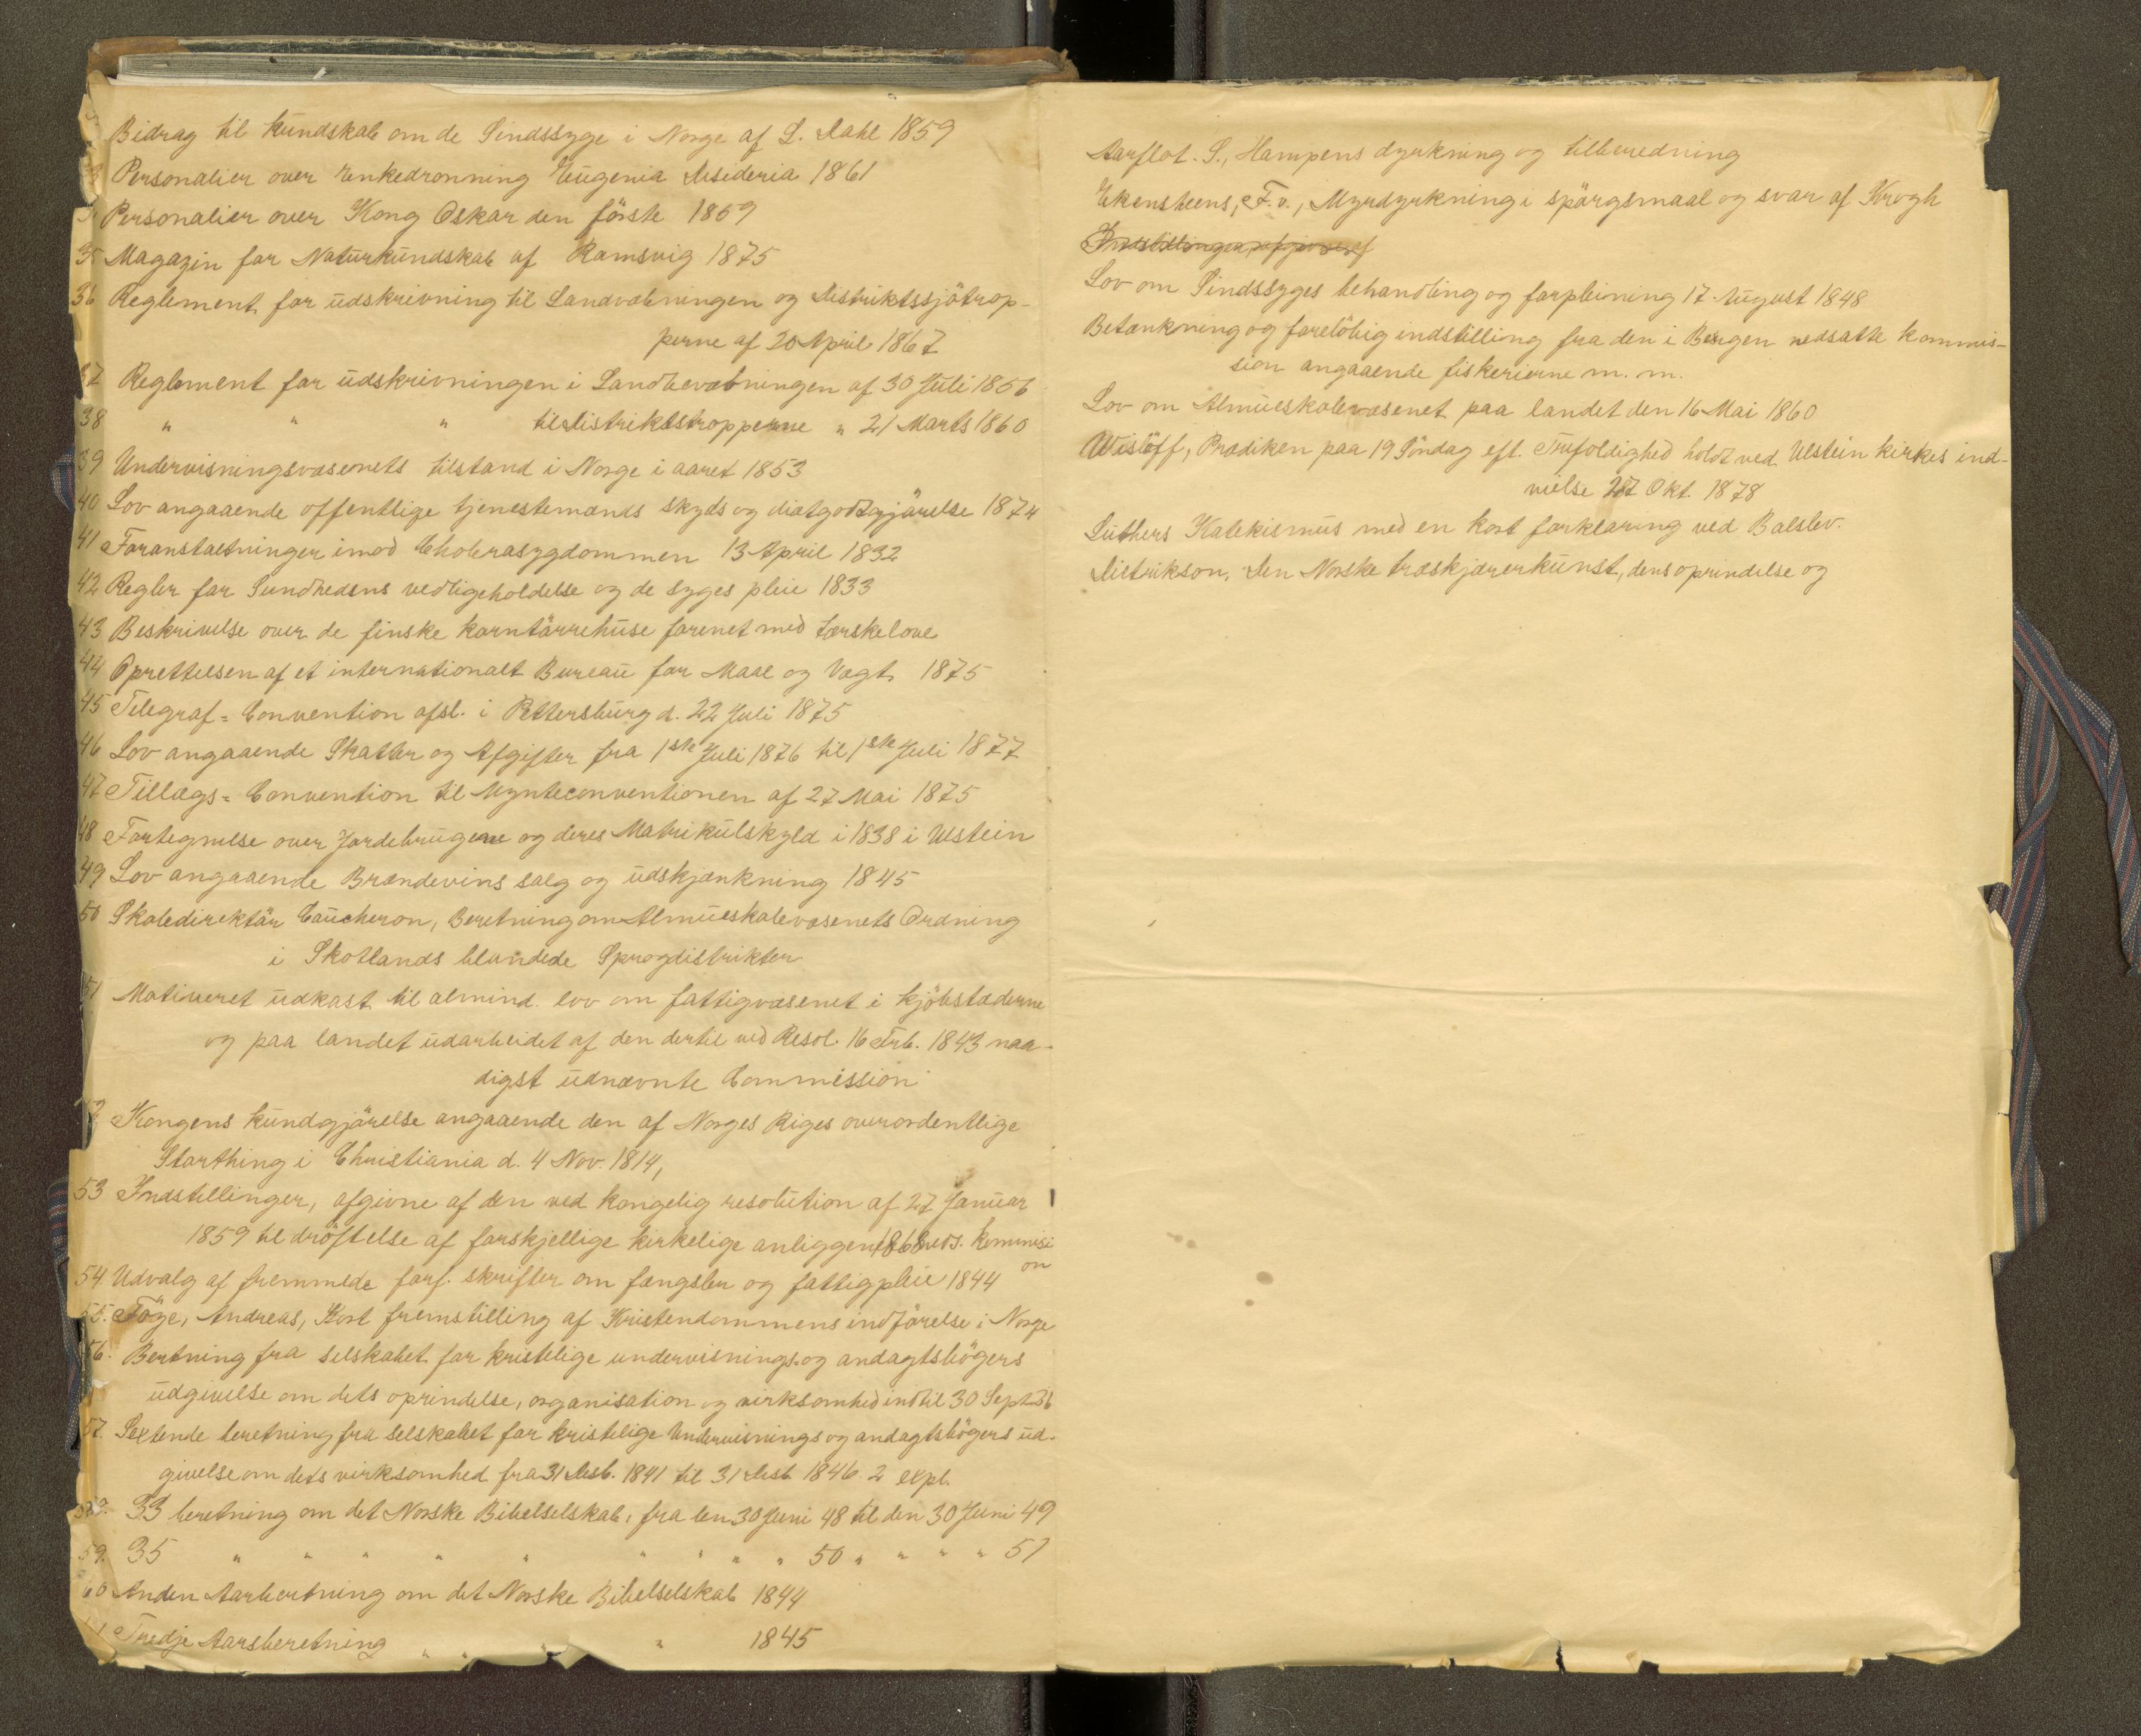 Bidrag til kundskab om de Sindssyge i Norge af L. Dahl 1859
Personalier over Enkedronning Eugenia Desideria 1861
Personalier over Kong Oskar den förste 1859
35 Magazin for Naturkundskab af Ramsvig 1875
36 Reglement for udskrivning til Landvæbningen og Distriktssjötrop-
perne af 20 April 1867
37 Reglement for udskrivningen i Landbevæbningen af 30 Juli 1856
38 " " " til Distriktstropperne " 21 Marts 1860
39 Undervisningsvæsenets tilstand i Norge i aaret 1853
40 Lov angaaende offentlige tjenestemænds skyds og diætgodtgjörelse 1874
41 Foranstaltninger imod Cholerasygdommen 13 April 1832
42 Regler for Sundhedens vedligeholdelse og de syges pleie 1833
43 Beskrivelse over de finske korntörrehuse forenet med tærskelove
44 Oprettelsen af et internationalt Bureau for Maal og Vægt 1875
45 Telegraf=Convention afsl. i Pettersburg d. 22 Juli 1875
46 Lov angaaende Skatter og Afgifter fra 1ste Juli 1876 til 1ste Juli 1877
47 Tillægs=Convention til Mynteconventionen af 27 Mai 1875
48 Fortegnelse over Jordebrugene og deres Matrikulskyld i 1838 i Ulstein
49 Lov angaaende Brændevins salg og udskjænkning 1845
50 Skoledirektör Caucheron, Beretning om Almueskolevæsenets Ordning
i Skotlands blandede Sprogdistrikter
51 Motiveret udkast til almind. lov om fattigvæsenet i kjöbstæderne
og paa landet udarbeidet af den dertil ved Resol. 16 Frb. 1843 naa-
digst udnævnte Commission
Kongens kundgjörelse angaaende den af Norges Riges overordentlige
Storthing i Christiania d. 4 Nov. 1814,
53 Indstillinger, afgivne af den ved kongelig resolution af 27 Januar
1859 til dröftelse af forskjellige kirkelige anliggen 1868 neds. Kommisi
on
54 Udvalg af fremmede forf. skrifter om fængsler og fattigpleie 1844
55. Föge, Andreas, Kort fremstilling af Kristendommens indförelse i Norge
56. Beretning fra selskabet for kristelige undervisnings-og andagtsbögers
udgivelse om dets oprindelse, organisation og virksomhed indtil 30 Septb
57. Sextende beretning fra selskabet for kristelige Undervisnings og andagtsbögers ud-
givelse om dets virksomhed fra 31 Desb. 1841 til 31 Desb 1846 2 expl.
58. 33 beretning om det Norske Bibelselskab, fra den 30 Juni 48 til den 30 Juni 49
59. 35 " " " " " " " " " 50 " " " " 51
60 Anden Aarbertning om det Norske Bibelselskab 1844
Tredje Aarsberetning " " " " 1845
Aarflot. S., Hampens dyrkning og tilberedning
Ekensteens, F. v., Myrdyrkning i spörgsmaal og svar af Krogh
Indstillinger, afgivne af
Lov om Sindssyges behandling og forpleining 17. August 1848
Betænkning og forelöbig indstilling fra den i Bergen nedsatte kommis-
sion angaaende fiskerierne m. m.
Lov om Almueskolevæsenet paa landet den 16 Mai 1860
Wislöff, Prædiken paa 19 Söndag eft. Trefoldighed holdt ved Ulstein kirkes ind-
vielse 27 Okt. 1878
Luthers Katekismus med en kort forklaring ved Balslev.
Dietrikson, Den Norske træskjærerkunst, dens oprindelse og